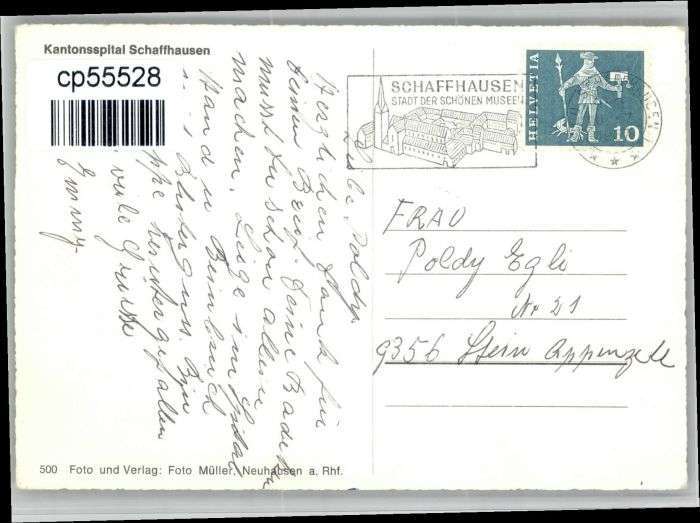 Kantonsspital Schaffhausen
cp55528
SCHAFFHAUSEN
STADT DER SCHÖNEN MUSEEN
HELVETIA
10
Liebe Poldy.
Herzlichen Dank für
Deine Badekur
musst Du schon allein
machen. Liege im Spital
Hand u Beinbruch
Bluterguss. Bin
heruntergefallen
viele Grüsse
Emmy.
FRAU
Poldy Egli
Nr 21
9356 Stein Appenzell
500 Foto und Verlag: Foto Müller, Neuhausen a. Rhf.